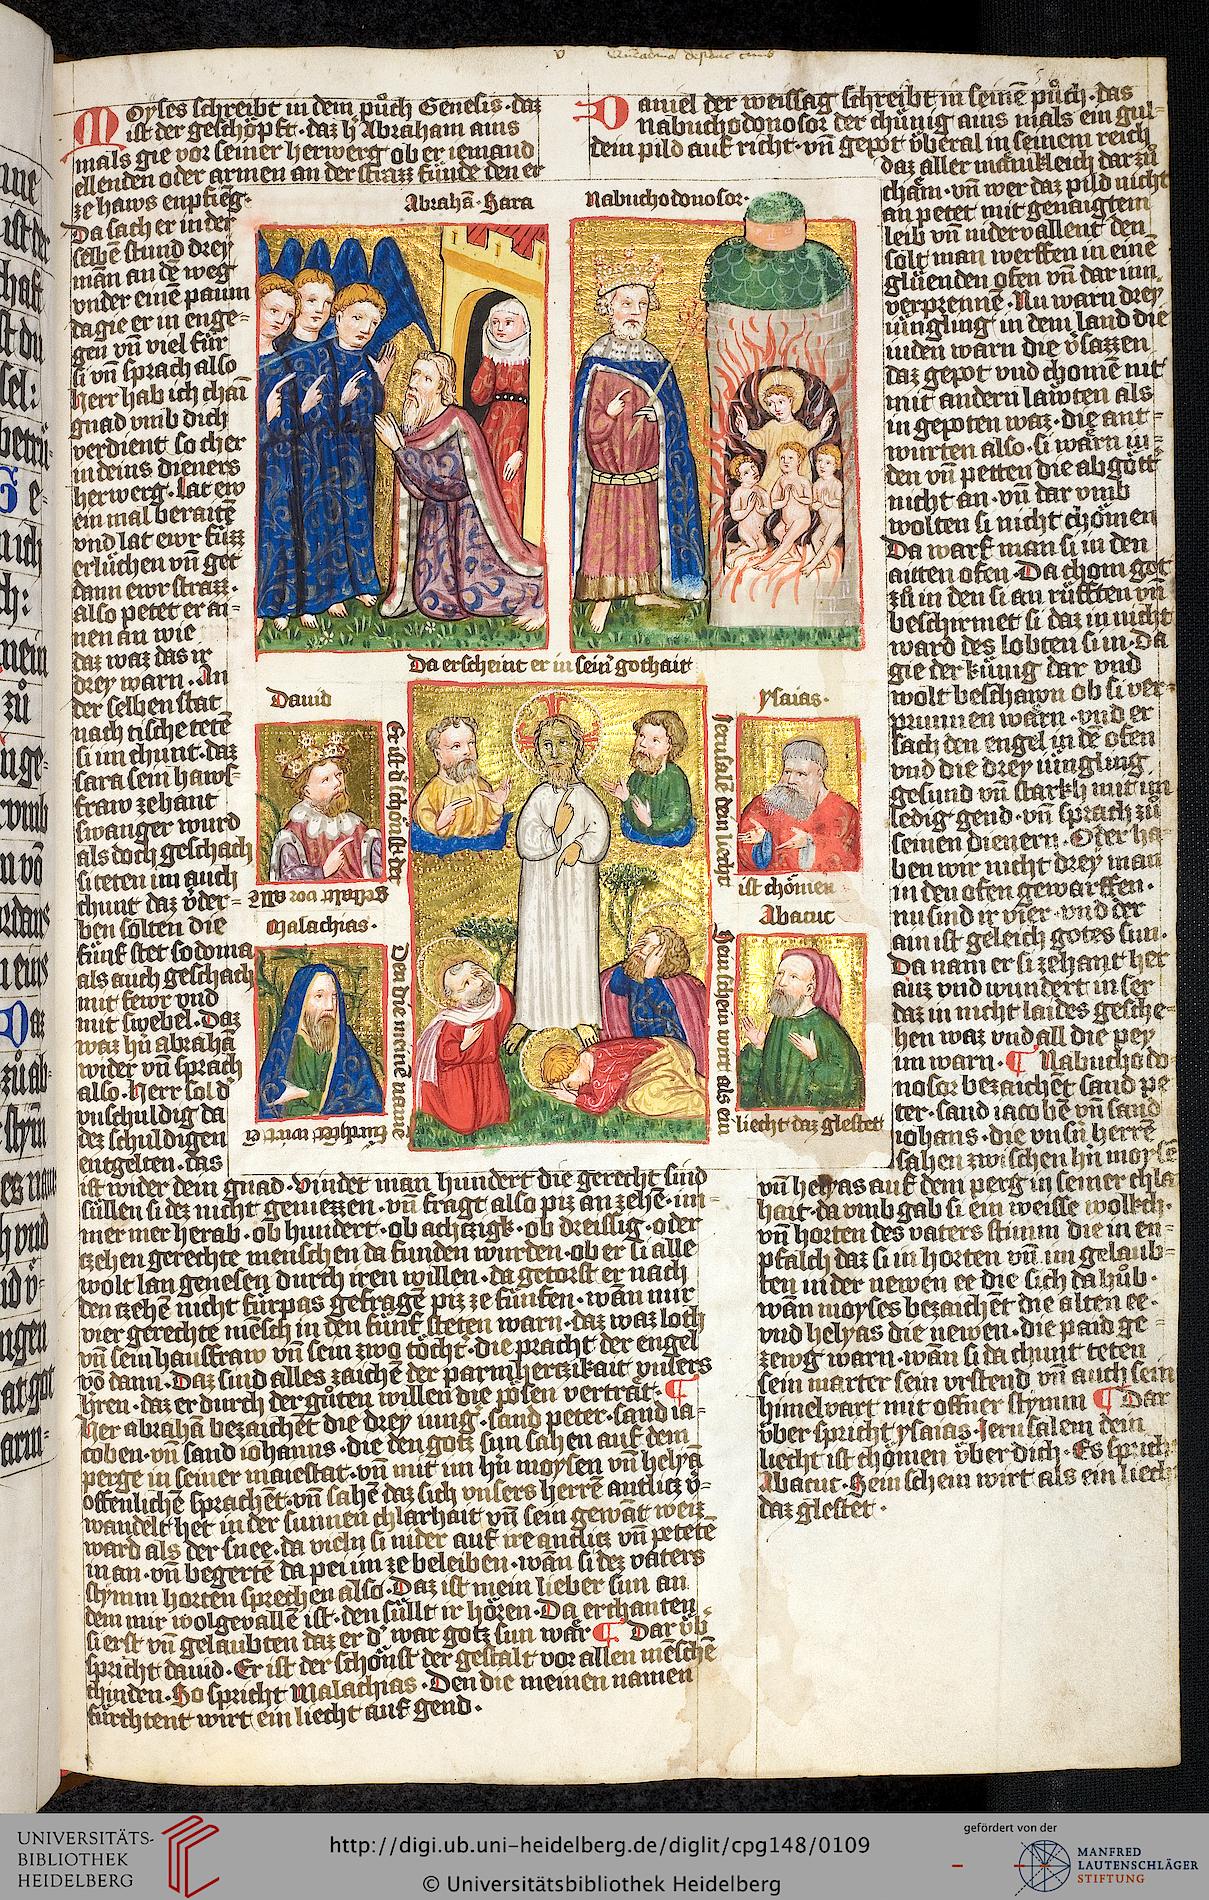 Moyses schreibt in dem půch Genesis · daz
ist der geschöpft · daz h̃ Abraham ains
mals gie vor seiner herwerg ob er iemand
ellenden oder armen an der strazz fünde den er
ze haws enpfieng ·
Da sach er in der
selbẽ stund drey
man an dẽ weg
vnder einẽ paum
da gie er in enge⸗
gen vñ viel für
si vñ sprach also
herr hab ich chain
gnad vmb dich
verdient so cher
in deins dieners
herwerg · lat ew
ein mal beraitẽ
vnd lat ewr füzz
erlüchen vñ get
dann ewr strazz ·
also petet er ai⸗
nen an wie
daz waz das ir
drey warn · In
der selben stat
nach tische tetẽ
si im chunt · daz
sara sein haws⸗
fraw ze hant
swanger wurd
als doch geschach
si teten im auch
chunt daz v̈der⸗
ben solten die
fünf stet sodoma
als auch geschach
mit fewr vnd
mit swebel · Daz
waz hñ abrahã
wider vñ sprach
also · Herr sol d̕
vnschuldig da
dez schuldigen
entgelten · das
ist wider dem gnad · vindet man hundert die gerecht sind
süllen si dez nicht geniezzen · vñ fragt also piz an zehẽ · im⸗
mer mer herab · ob hundert · ob achtzigk · ob dreissig · oder
tzehen gerechte menschen da funden wurden · ob er si alle
wolt lan genesen durch iren willen · da getorst er nach
den tzehẽ nicht fürpas gefragẽ piz ze fünfen · wañ nur
vier gerechte mẽsch in den fünf steten warn · daz waz loth
vñ sein hausfraw vñ sein zwo töcht̕ · die pracht der engel
võ dann · Daz sind alles zaichẽ der parmhertzikait vnsers
hren · daz er durch der gůten willen die pösen verträt · ¶
Her abrahã bezaichẽt die drey iung̕ · sand peter · sand ia⸗
coben · vñ sand iohanns · die den gotz sun sahen auf dem
perge in seiner maiestat · vñ mit im hñ moysen vñ helyã
offenlichẽ sprachẽt · vñ sahẽ daz sich vnsers herrẽ antlicz v̈⸗
wandelt het in der sunnen chlarhait vñ sein gewãt weiz
ward als der snee · da vieln si nider auf ire antlicz vñ petetẽ
in an · vñ begertẽ da pei im ze beleiben · wañ si dez vaters
stymm horten sprechen also · Daz ist mein lieber sun an
dem mir wolgevallẽ ist · den süllt ir hören · Da erchanten
si erst vñ gelaubten daz er d̕ war gotz sun wär ¶ Dar v̈b̕
spricht dauid · Er ist der schönst der gestalt vor allen mẽschẽ
chinden · So spricht Malachias · Den die meinen namen
fürchtent wirt ein liecht auf gend ·
Daniel der weissag schreibt in seinẽ půch · das
Nabuchodonosor der chünig ains mals ein gul⸗
dein pild auf richt · vñ gepot v̈beral in seinem reich
daz aller mãnikleich dar zů
chäm · vñ wer daz pild nicht
an petet mit genaigtem
leib vñ nidervallent den
solt man werffen in einẽ
glüenden ofen vñ dar inn
verprennẽ · Nu warn drey
iüngling in dem land die
iuden warn die v̈sazzen
daz gepot vnd chomẽ nit
mit andern läwten als
in gepoten waz · die ant⸗
wurten also · si wärn iu⸗
den vñ petten die abgött
nicht an · vñ dar vmb
wolten si nicht chömen
Da warf man si in den
aitten ofen · Da chom got
zů in den si an rüfften vñ
beschirmet si daz in nicht
ward des lobten si in · Da
gie der künig dar vnd
wolt beschawn ob si ver⸗
prunnen wärn · vnd er
sach den engel in dẽ ofen
vnd die drey iüngling
gesund vñ starkh mit im
ledig gend · vñ sprach zů
seinen dienern · Oder ha⸗
ben wir nicht drey man
in den ofen geworffen ·
nu sind ir vier · vnd der
ain ist geleich gotes sun ·
Da nam er si ze hant her
auz vnd wundert in ser
daz in nicht laides gesche⸗
hen waz vnd all die pey
im warn · ¶ Nabuchodo⸗
nosor bezaichẽt sand pe⸗
ter · sand iacobẽ vñ sand
iohans · die vnsñ herrẽ
sahen zwischen hñ moyse
vñ helyas auf dem perg in seiner chla⸗
hait · da vmb gab si ein weisse wolkch ·
vñ horten des vaters stimm die in en⸗
pfalch daz si in horten vñ im gelaub⸗
ten in der newen ee die sich da hůb ·
wañ moyses bezaichẽt die alten ee ·
vnd helyas die newen · die paid ge⸗
zewg warn · wañ si da chunt teten
sein marter sein vrstend vñ auch sein
himelvart mit offner stymm ¶ Dar
v̈ber spricht ysaias · Jerusalem dein
liecht ist chömen v̈ber dich · Es spricht
Abacuc · Sein schein wirt als ein liech
daz glestet ·
Abrahã · Sara
Nabuchodonosor ·
Da erscheint er in sein̕ gothait
Dauid
Er ist d̕ schönst der
gestalt vor allẽ
ysaias ·
Jerusalẽ dein liecht
ist chömen
Malachias ·
Den die meinẽ namẽ
fürchtent wirt ei
Abacuc
Sein schein wirt als ein
liecht daz glestet
UNIVERSITÄTS-
BIBLIOTHEK
HEIDELBERG
http://digi.ub.uni-heidelberg.de/diglit/cpg148/0109
© Universitätsbibliothek Heidelberg
gefördert von der
MANFRED
LAUTENSCHLÄGER
STIFTUNG